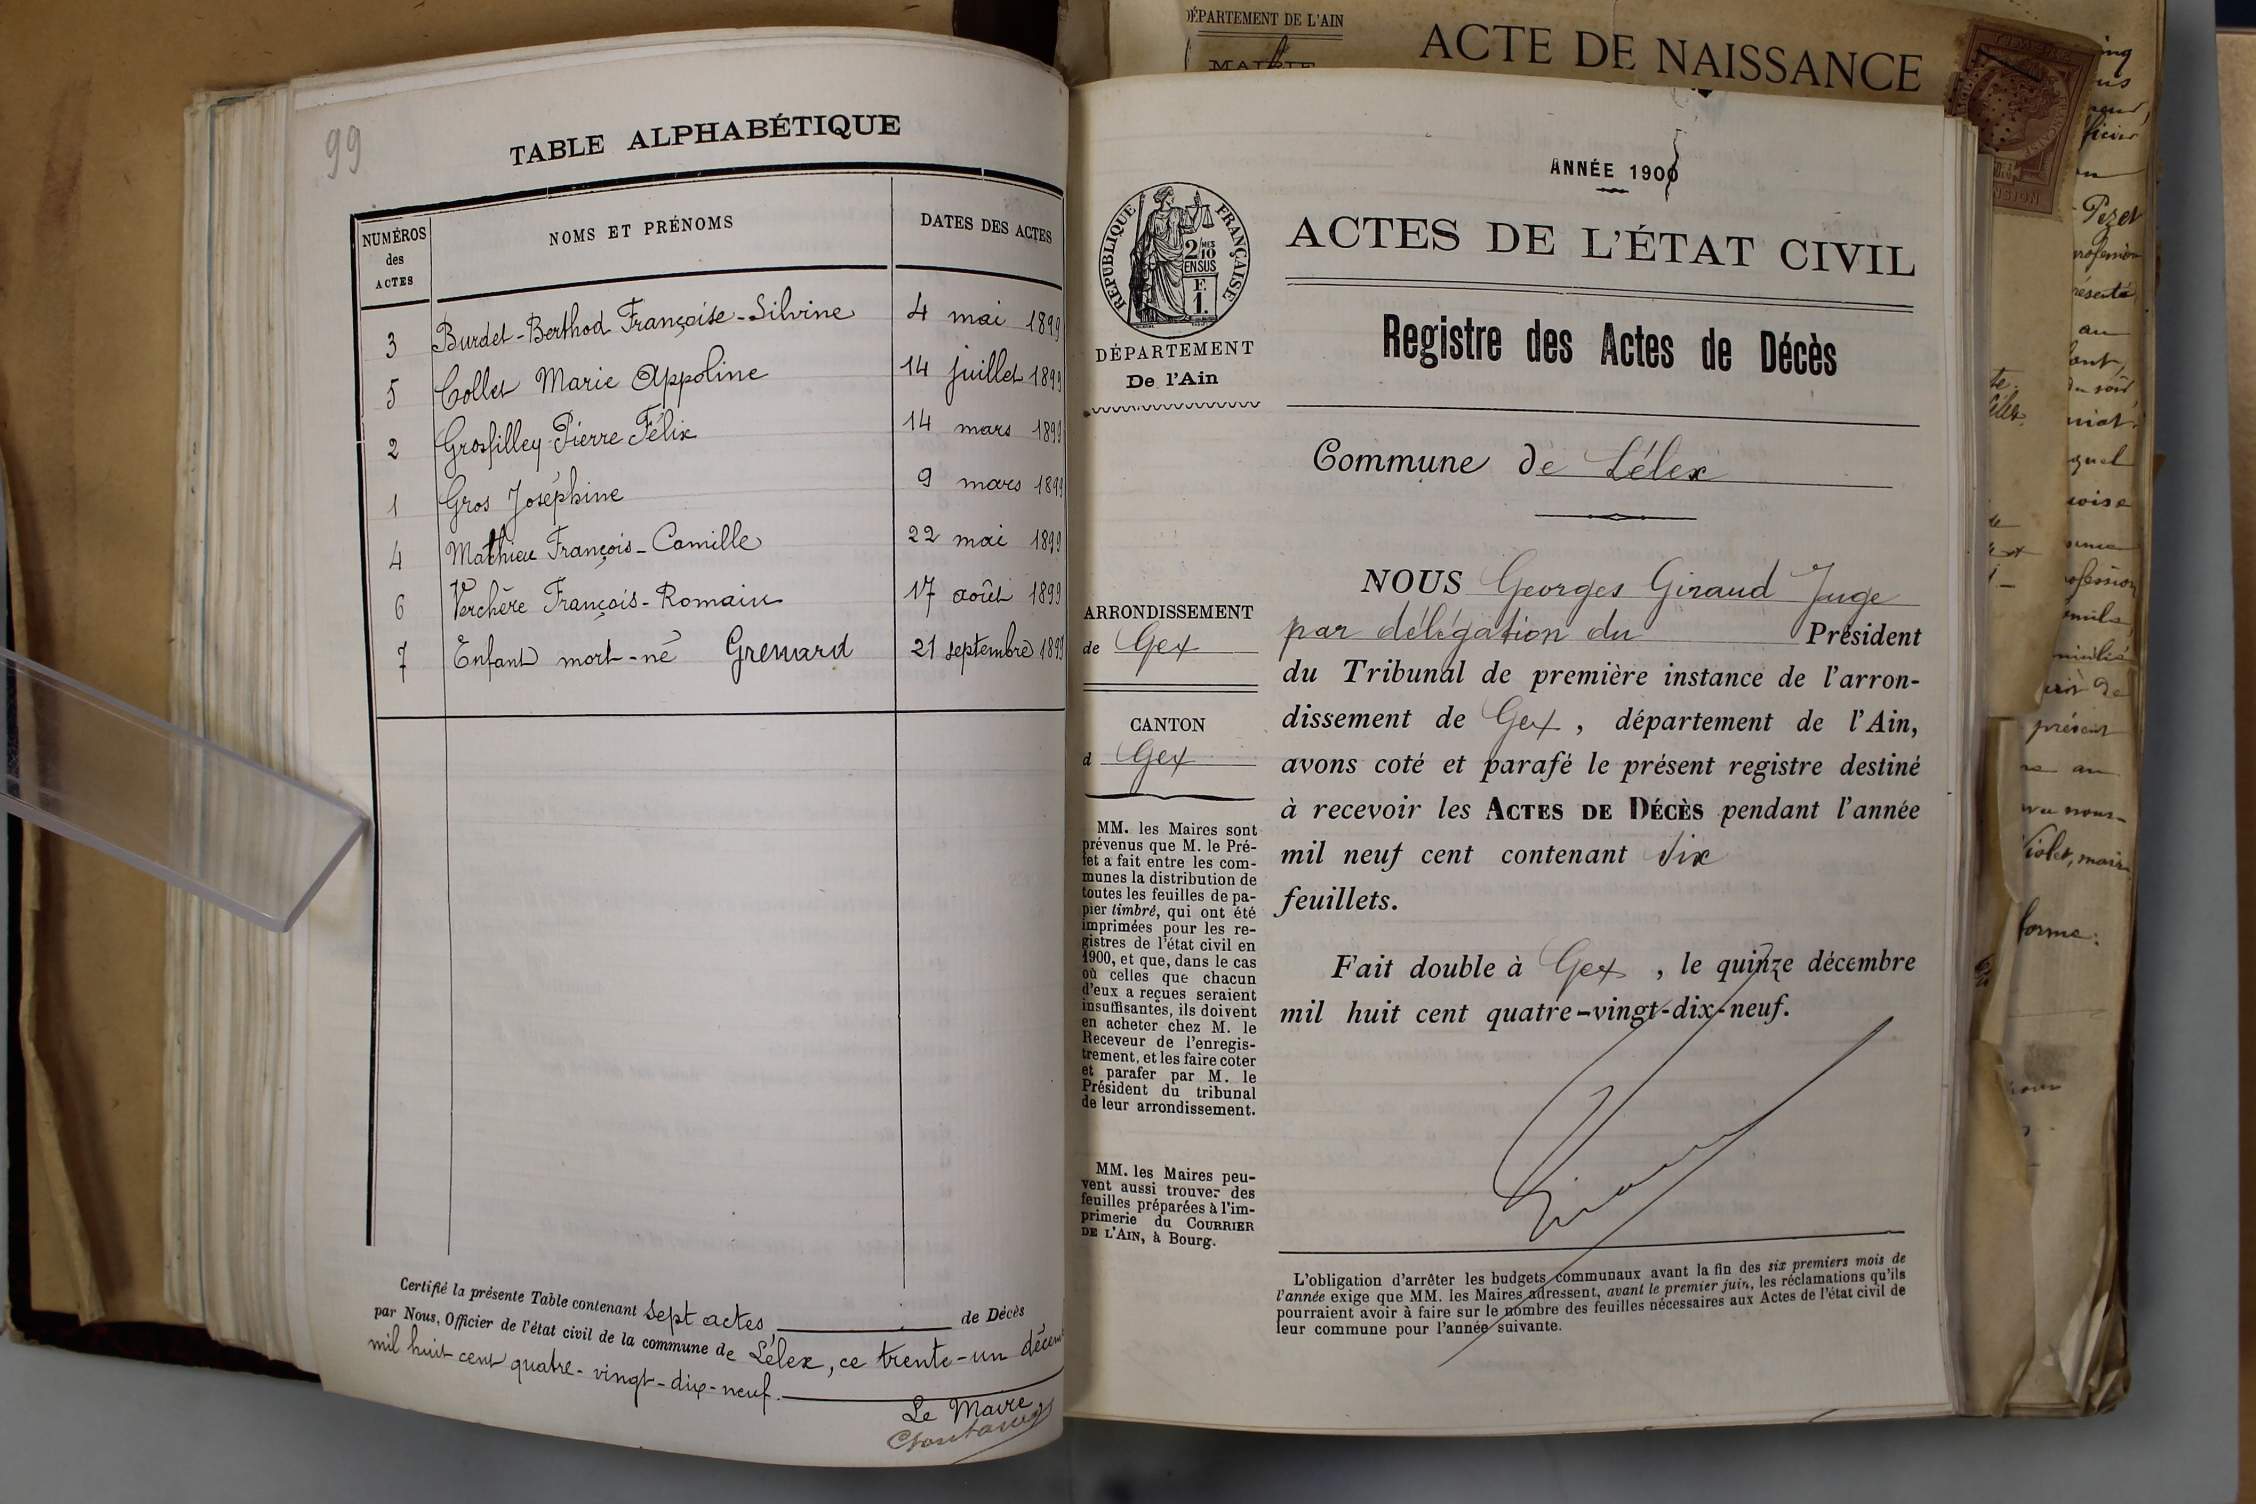 99
TABLE ALPHABÉTIQUE
NUMÉROS des ACTES
NOMS ET PRÉNOMS
DATES DES ACTES
3 Burdet-Berthod Françoise-Silvine 4 mai 1899
5 Collet Marie Appoline 14 juillet 1899
2 Grosfilley Pierre Félix 14 mars 1899
1 Gros Joséphine 9 mars 1899
4 Mathieu François-Camille 22 mai 1899
6 Verchère François-Romain 17 août 1899
7 Enfant mort-né Grenard 21 septembre 1899
Certifié la présente Table contenant sept actes de Décès
par Nous, Officier de l'état civil de la commune de Lélex, ce trente-un décem
mil huit cent quatre-vingt-dix-neuf.
Le Maire
DÉPARTEMENT DE L'AIN
MAIRIE
ACTE DE NAISSANCE
ANNÉE 1900
RÉPUBLIQUE FRANÇAISE
2/10
EN SUS
F.
1.
DÉPARTEMENT
De l'Ain
ACTES DE L'ÉTAT CIVIL
Registre des Actes de Décès
Commune de Lélex
ARRONDISSEMENT
de Gex
CANTON
d Gex
MM. les Maires sont
prévenus que M. le Pré-
fet a fait entre les com-
munes la distribution de
toutes les feuilles de pa-
pier timbré, qui ont été
imprimées pour les re-
gistres de l'état civil en
1900, et que, dans le cas
où celles que chacun
d'eux a reçues seraient
insuffisantes, ils doivent
en acheter chez M. le
Receveur de l'enregis-
trement, et les faire coter
et parafer par M. le
Président du tribunal
de leur arrondissement.
MM. les Maires peu-
vent aussi trouver des
feuilles préparées à l'im-
primerie du COURRIER
DE L'AIN, à Bourg.
NOUS Georges Giraud Juge
par délégation du Président
du Tribunal de première instance de l'arron-
dissement de Gex, département de l'Ain,
avons coté et parafé le présent registre destiné
à recevoir les ACTES DE DÉCÈS pendant l'année
mil neuf cent contenant six
feuillets.
Fait double à Gex, le quinze décembre
mil huit cent quatre-vingt-dix-neuf.
L'obligation d'arrêter les budgets communaux avant la fin des six premiers mois de
l'année exige que MM. les Maires adressent, avant le premier juin, les réclamations qu'ils
pourraient avoir à faire sur le nombre des feuilles nécessaires aux Actes de l'état civil de
leur commune pour l'année suivante.
Pezet
présent
forme: